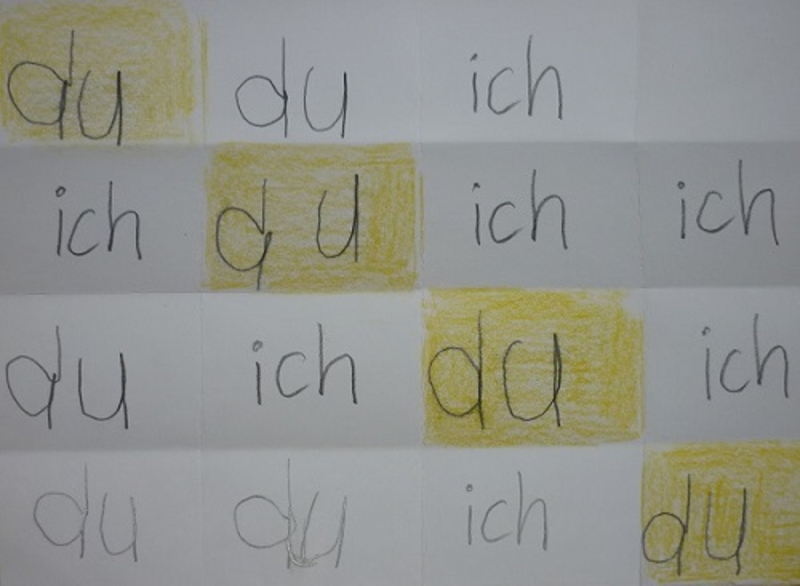 du du ich
ich du ich ich
du ich du ich
du du ich du